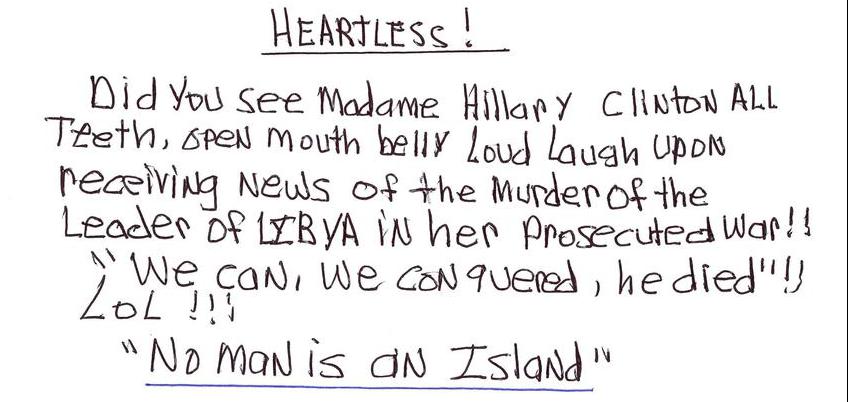 HEARTLESS!
Did You see Madame Hillary Clinton ALL
Teeth, open mouth belly Loud Laugh UPON
receiving News of the Murder of the
Leader of LIBYA in her Prosecuted War!!
"We can, We conquered, he died"!!
LOL !!!
"No man is an Island"